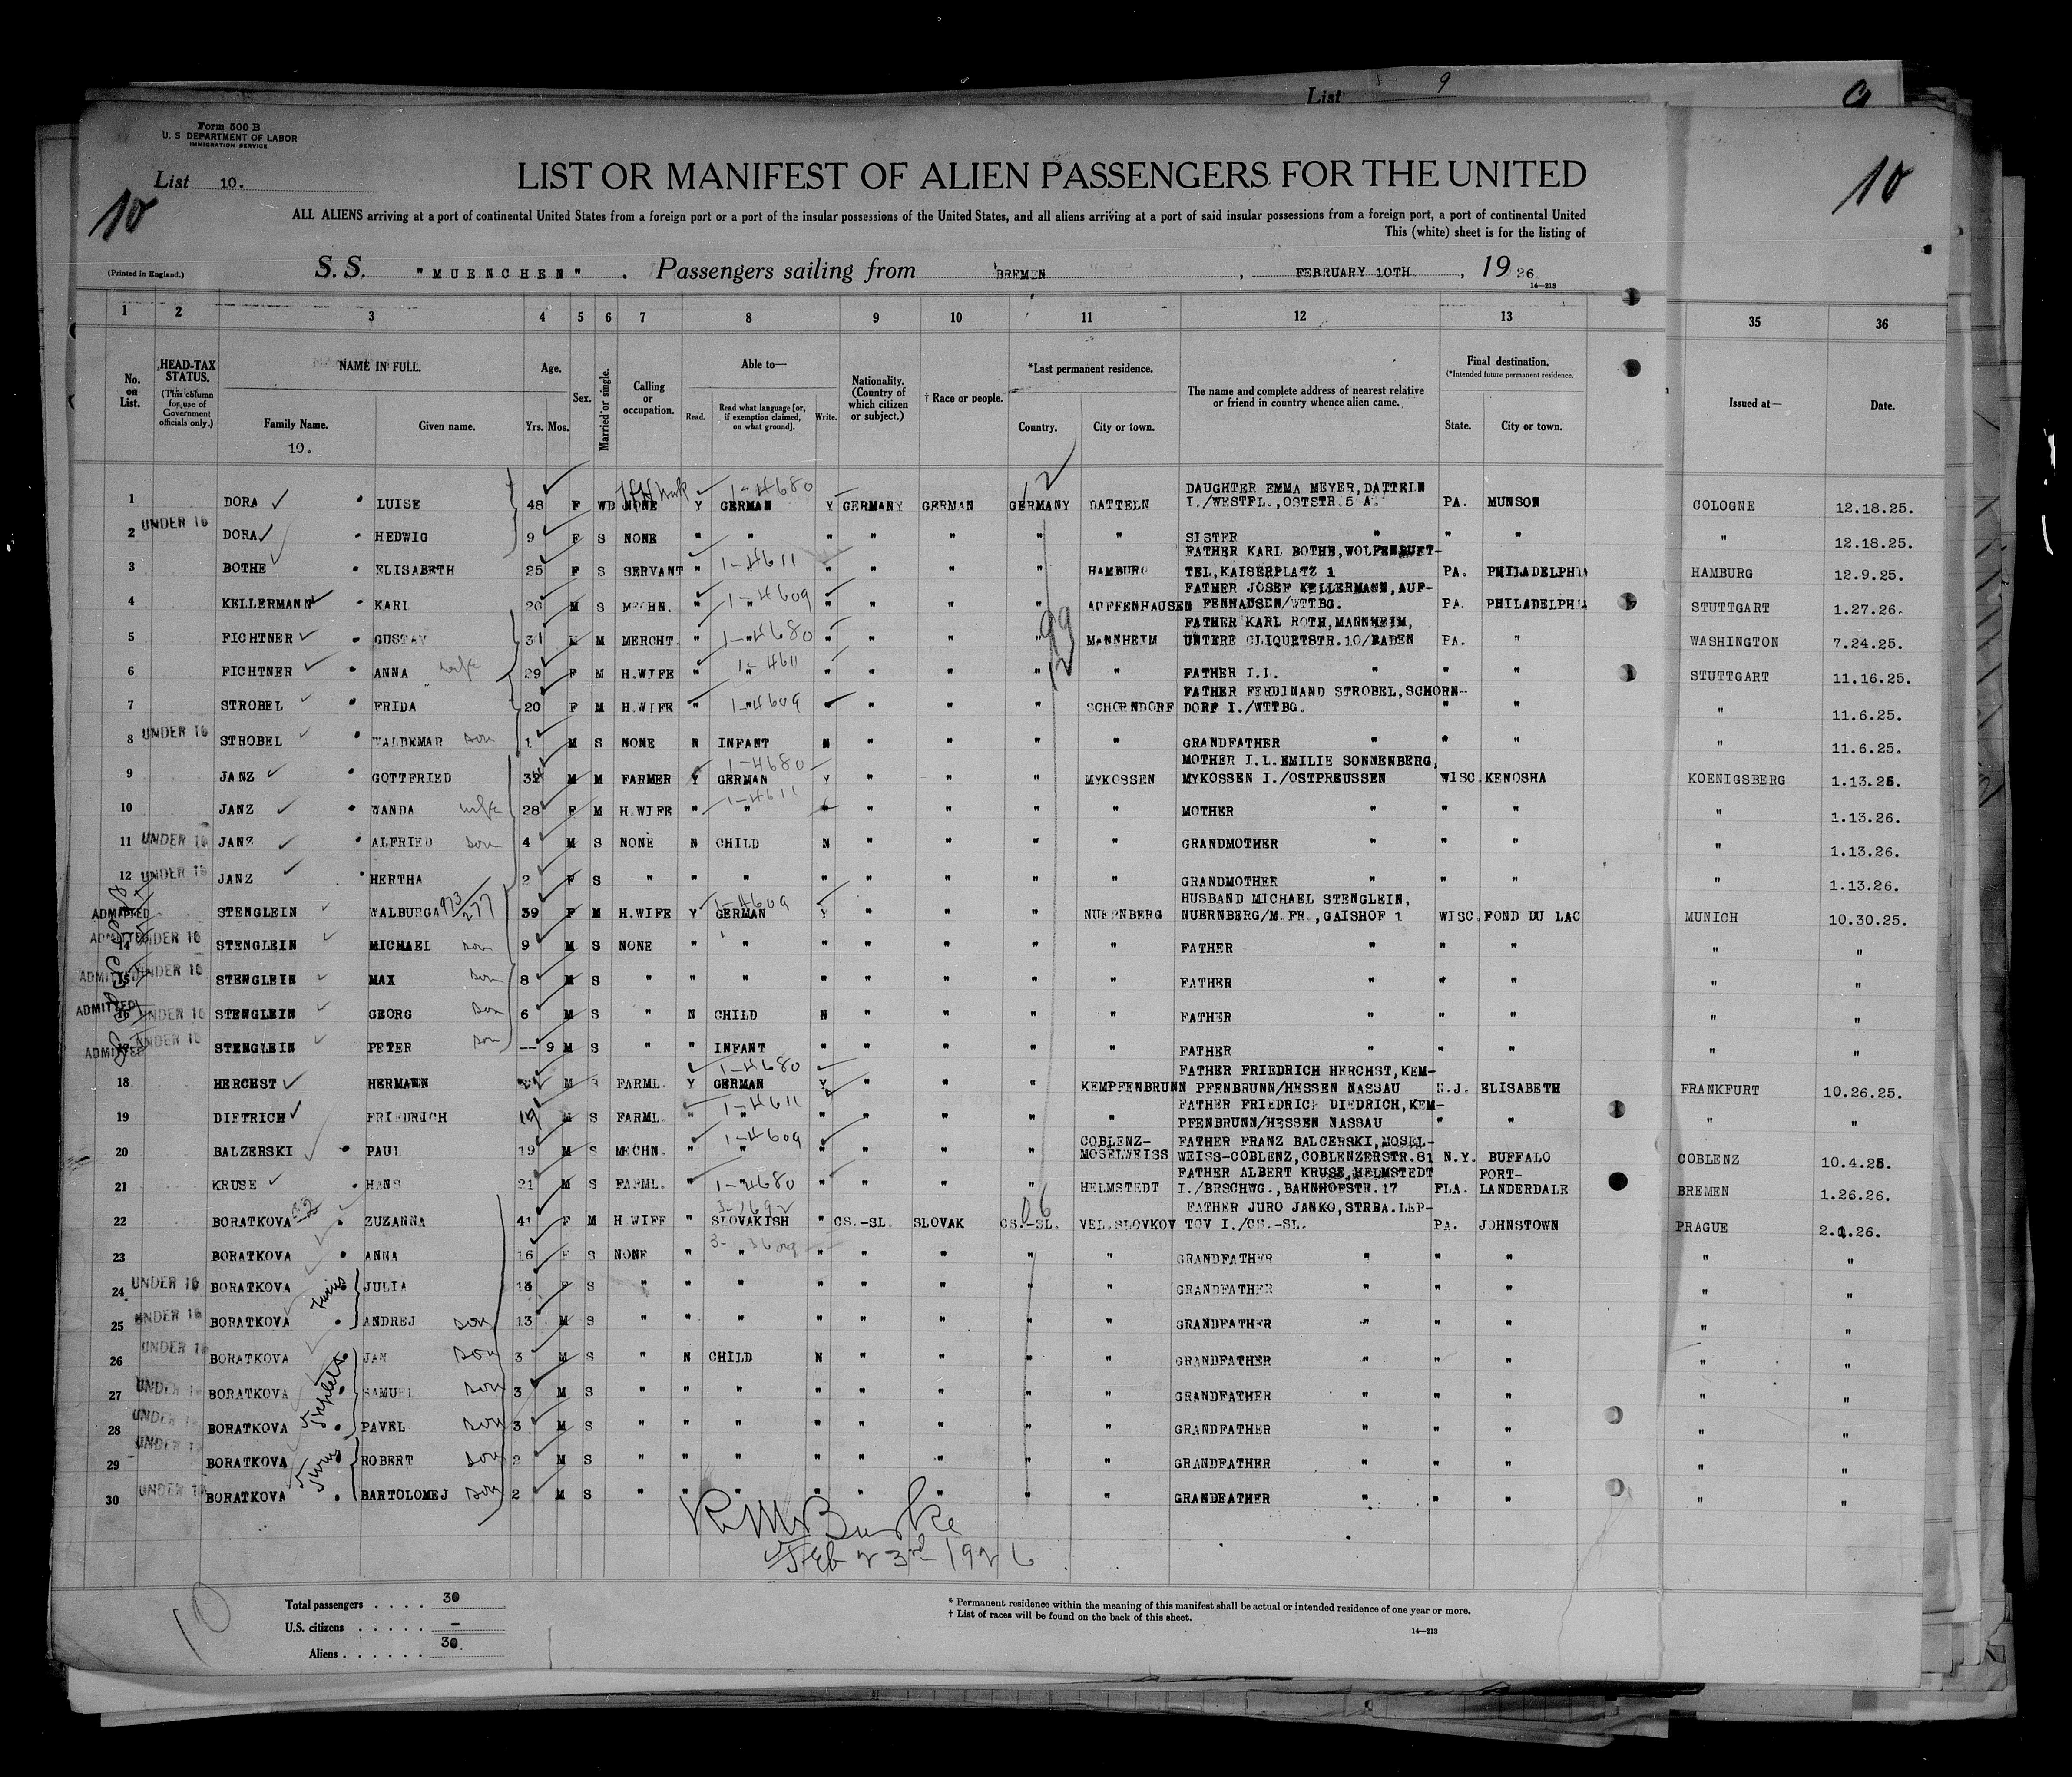 List 9
9
Form 500 B
U. S DEPARTMENT OF LABOR
IMMIGRATION SERVICE
List 10.
10
10
LIST OR MANIFEST OF ALIEN PASSENGERS FOR THE UNITED
ALL ALIENS arriving at a port of continental United States from a foreign port or a port of the insular possessions of the United States, and all aliens arriving at a port of said insular possessions from a foreign port, a port of continental United
This (white) sheet is for the listing of
(Printed in England.)
S. S. "MUENCHEN" . Passengers sailing from BREMEN , FEBRUARY 10TH , 19 26
14—213
1 2 3 4 5 6 7 8 9 10 11 12 13 35 36
No. on List.
HEAD-TAX STATUS. (This column for use of Government officials only.)
NAME IN FULL.
Family Name. 10.
Given name.
Age. Yrs. Mos.
Sex.
Married or single.
Calling or occupation.
Able to—
Read. Read what language [or, if exemption claimed, on what ground]. Write.
Nationality. (Country of which citizen or subject.)
† Race or people.
*Last permanent residence.
Country. City or town.
The name and complete address of nearest relative or friend in country whence alien came.
Final destination.
(*Intended future permanent residence.
State. City or town.
Issued at—
Date.
1 DORA LUISE 48 F WD NONE Y GERMAN 1-4680 Y GERMANY GERMAN GERMANY DATTELN DAUGHTER EMMA MEYER, DATTELN I./WESTFL., OSTSTR. 5 A. PA. MUNSON COLOGNE 12.18.25.
2 UNDER 16 DORA HEDWIG 9 F S NONE " " " " " " " SISTER " " " " 12.18.25.
3 BOTHE ELISABETH 25 F S SERVANT " " 1-4611 " " " " HAMBURG FATHER KARL BOTHE, WOLFENBUET-TEL, KAISERPLATZ 1 PA. PHILADELPHIA HAMBURG 12.9.25.
4 KELLERMANN KARL 20 M S MECHN. " " 1-4609 " " " " AUFFENHAUSEN FATHER JOSEF KELLERMANN, AUF-FENHAUSEN/WTTBG. PA. PHILADELPHIA STUTTGART 1.27.26.
5 FICHTNER GUSTAV 31 M M MERCHT. " " 1-4680 " " " " MANNHEIM FATHER KARL ROTH, MANNHEIM, UNTERE CLIQUETSTR. 10/BADEN PA. " WASHINGTON 7.24.25.
6 FICHTNER ANNA wife 29 F M H.WIFE " " 1-4611 " " " " " FATHER I.L. " " " STUTTGART 11.16.25.
7 STROBEL FRIDA 20 F M H.WIFE " " 1-4609 " " " " SCHORNDORF FATHER FERDINAND STROBEL, SCHORN-DORF I./WTTBG. " " " 11.6.25.
8 UNDER 16 STROBEL WALDEMAR son 1 M S NONE N INFANT N " " " " GRANDFATHER " " " " 11.6.25.
9 JANZ GOTTFRIED M M FARMER Y GERMAN 1-4680 Y " " " MYKOSSEN MOTHER I.L. EMILIE SONNENBERG, MYKOSSEN I./OSTPREUSSEN WISC. KENOSHA KOENIGSBERG 1.13.26.
10 JANZ WANDA wife 28 F M H.WIFE " " 1-4611 " " " " " MOTHER " " " " 1.13.26.
11 UNDER 16 JANZ ALFRIED son 4 M S NONE N CHILD N " " " " GRANDMOTHER " " " " 1.13.26.
12 UNDER 16 JANZ HERTHA 2 F S " " " " " " " " GRANDMOTHER " " " " 1.13.26.
ADMITTED STENGLEIN WALBURGA 973/277 39 F M H.WIFE Y GERMAN 1-4609 Y " " " NUERNBERG HUSBAND MICHAEL STENGLEIN, NUERNBERG/M.FR., GAISHOF 1 WISC. FOND DU LAC MUNICH 10.30.25.
14 ADMITTED UNDER 16 STENGLEIN MICHAEL son 9 M S NONE " " " " " " " FATHER " " " " "
15 ADMITTED UNDER 16 STENGLEIN MAX son 8 M S " " " " " " " " FATHER " " " " "
16 ADMITTED UNDER 16 STENGLEIN GEORG son 6 M S " N CHILD N " " " " FATHER " " " " "
17 ADMITTED UNDER 16 STENGLEIN PETER son — 9 M S " " INFANT " " " " " FATHER " " " " "
18 HERCHST HERMANN M S FARML. Y GERMAN 1-4680 Y " " " KEMPFENBRUNN FATHER FRIEDRICH HERCHST, KEM-PFENBRUNN/HESSEN NASSAU N.J. ELISABETH FRANKFURT 10.26.25.
19 DIETRICH FRIEDRICH M S FARML. " " 1-4611 " " " " " FATHER FRIEDRICH DIEDRICH, KEM-PFENBRUNN/HESSEN NASSAU " " " "
20 BALZERSKI PAUL 19 M S MECHN. " " 1-4609 " " " " COBLENZ-MOSELWEISS FATHER FRANZ BALCERSKI, MOSEL-WEISS-COBLENZ, COBLENZERSTR. 81 N.Y. BUFFALO COBLENZ 10.4.25.
21 KRUSE HANS 21 M S FARML. " " 1-4680 " " " " HELMSTEDT FATHER ALBERT KRUSE, HELMSTEDT I./BRSCHWG., BAHNHOFSTR. 17 FLA. FORT-LANDERDALE BREMEN 1.26.26.
22 BORATKOVA ZUZANNA 41 F M H.WIFE " SLOVAKISH 3-1692 " CS.-SL. SLOVAK CS.-SL. VEL.SLOVKOV FATHER JURO JANKO, STRBA. LEP-TOV I./CS.-SL. PA. JOHNSTOWN PRAGUE 2.1.26.
23 BORATKOVA ANNA 16 F S NONE " " " " " " " GRANDFATHER " " " " "
24 UNDER 16 BORATKOVA twins JULIA 13 F S " " " " " " " " GRANDFATHER " " " " "
25 UNDER 16 BORATKOVA ANDREJ son 13 M S " " " " " " " " GRANDFATHER " " " " "
26 UNDER 16 BORATKOVA Triplets JAN son 3 M S " N CHILD N " " " " GRANDFATHER " " " " "
27 UNDER 16 BORATKOVA SAMUEL son 3 M S " " " " " " " " GRANDFATHER " " " " "
28 UNDER 16 BORATKOVA PAVEL son 3 M S " " " " " " " " GRANDFATHER " " " " "
29 UNDER 16 BORATKOVA Twins ROBERT son 2 M S " " " " " " " " GRANDFATHER " " " " "
30 UNDER 16 BORATKOVA BARTOLOMEJ son 2 M S " " " " " " " " GRANDFATHER " " " " "
Feb 23rd 1926
10
Total passengers . . . . 30
U.S. citizens . . . . . —
Aliens . . . . . . 30
* Permanent residence within the meaning of this manifest shall be actual or intended residence of one year or more.
† List of races will be found on the back of this sheet.
14—213